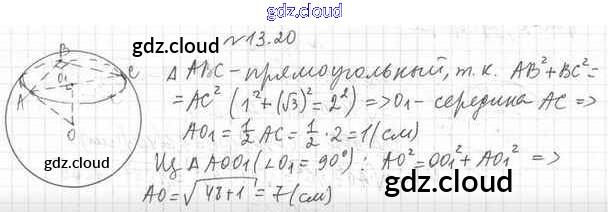 gdz.cloud
№13.20
gdz.cloud
B
O₁
C
A
O
gdz.cloud
△ABC - прямоугольный, т.к. AB²+BC²=
=AC² (1²+(√3)²=2²) => O₁ - середина AC =>
AO₁ = 1/2 AC = 1/2 · 2 = 1 (см)
Из △AOO₁ (∠O₁ = 90°): AO² = OO₁² + AO₁² =>
AO = √48+1 = 7 (см)
gdz.cloud